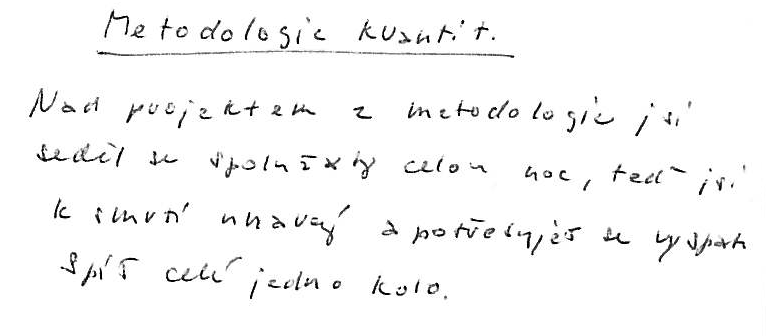 Metodologie kvantit.
Nad projektem z metodologie jsi
seděl se spolužáky celou noc, teď jsi
k smrti unavený a potřebuješ se vyspat.
Spíš celé jedno kolo.